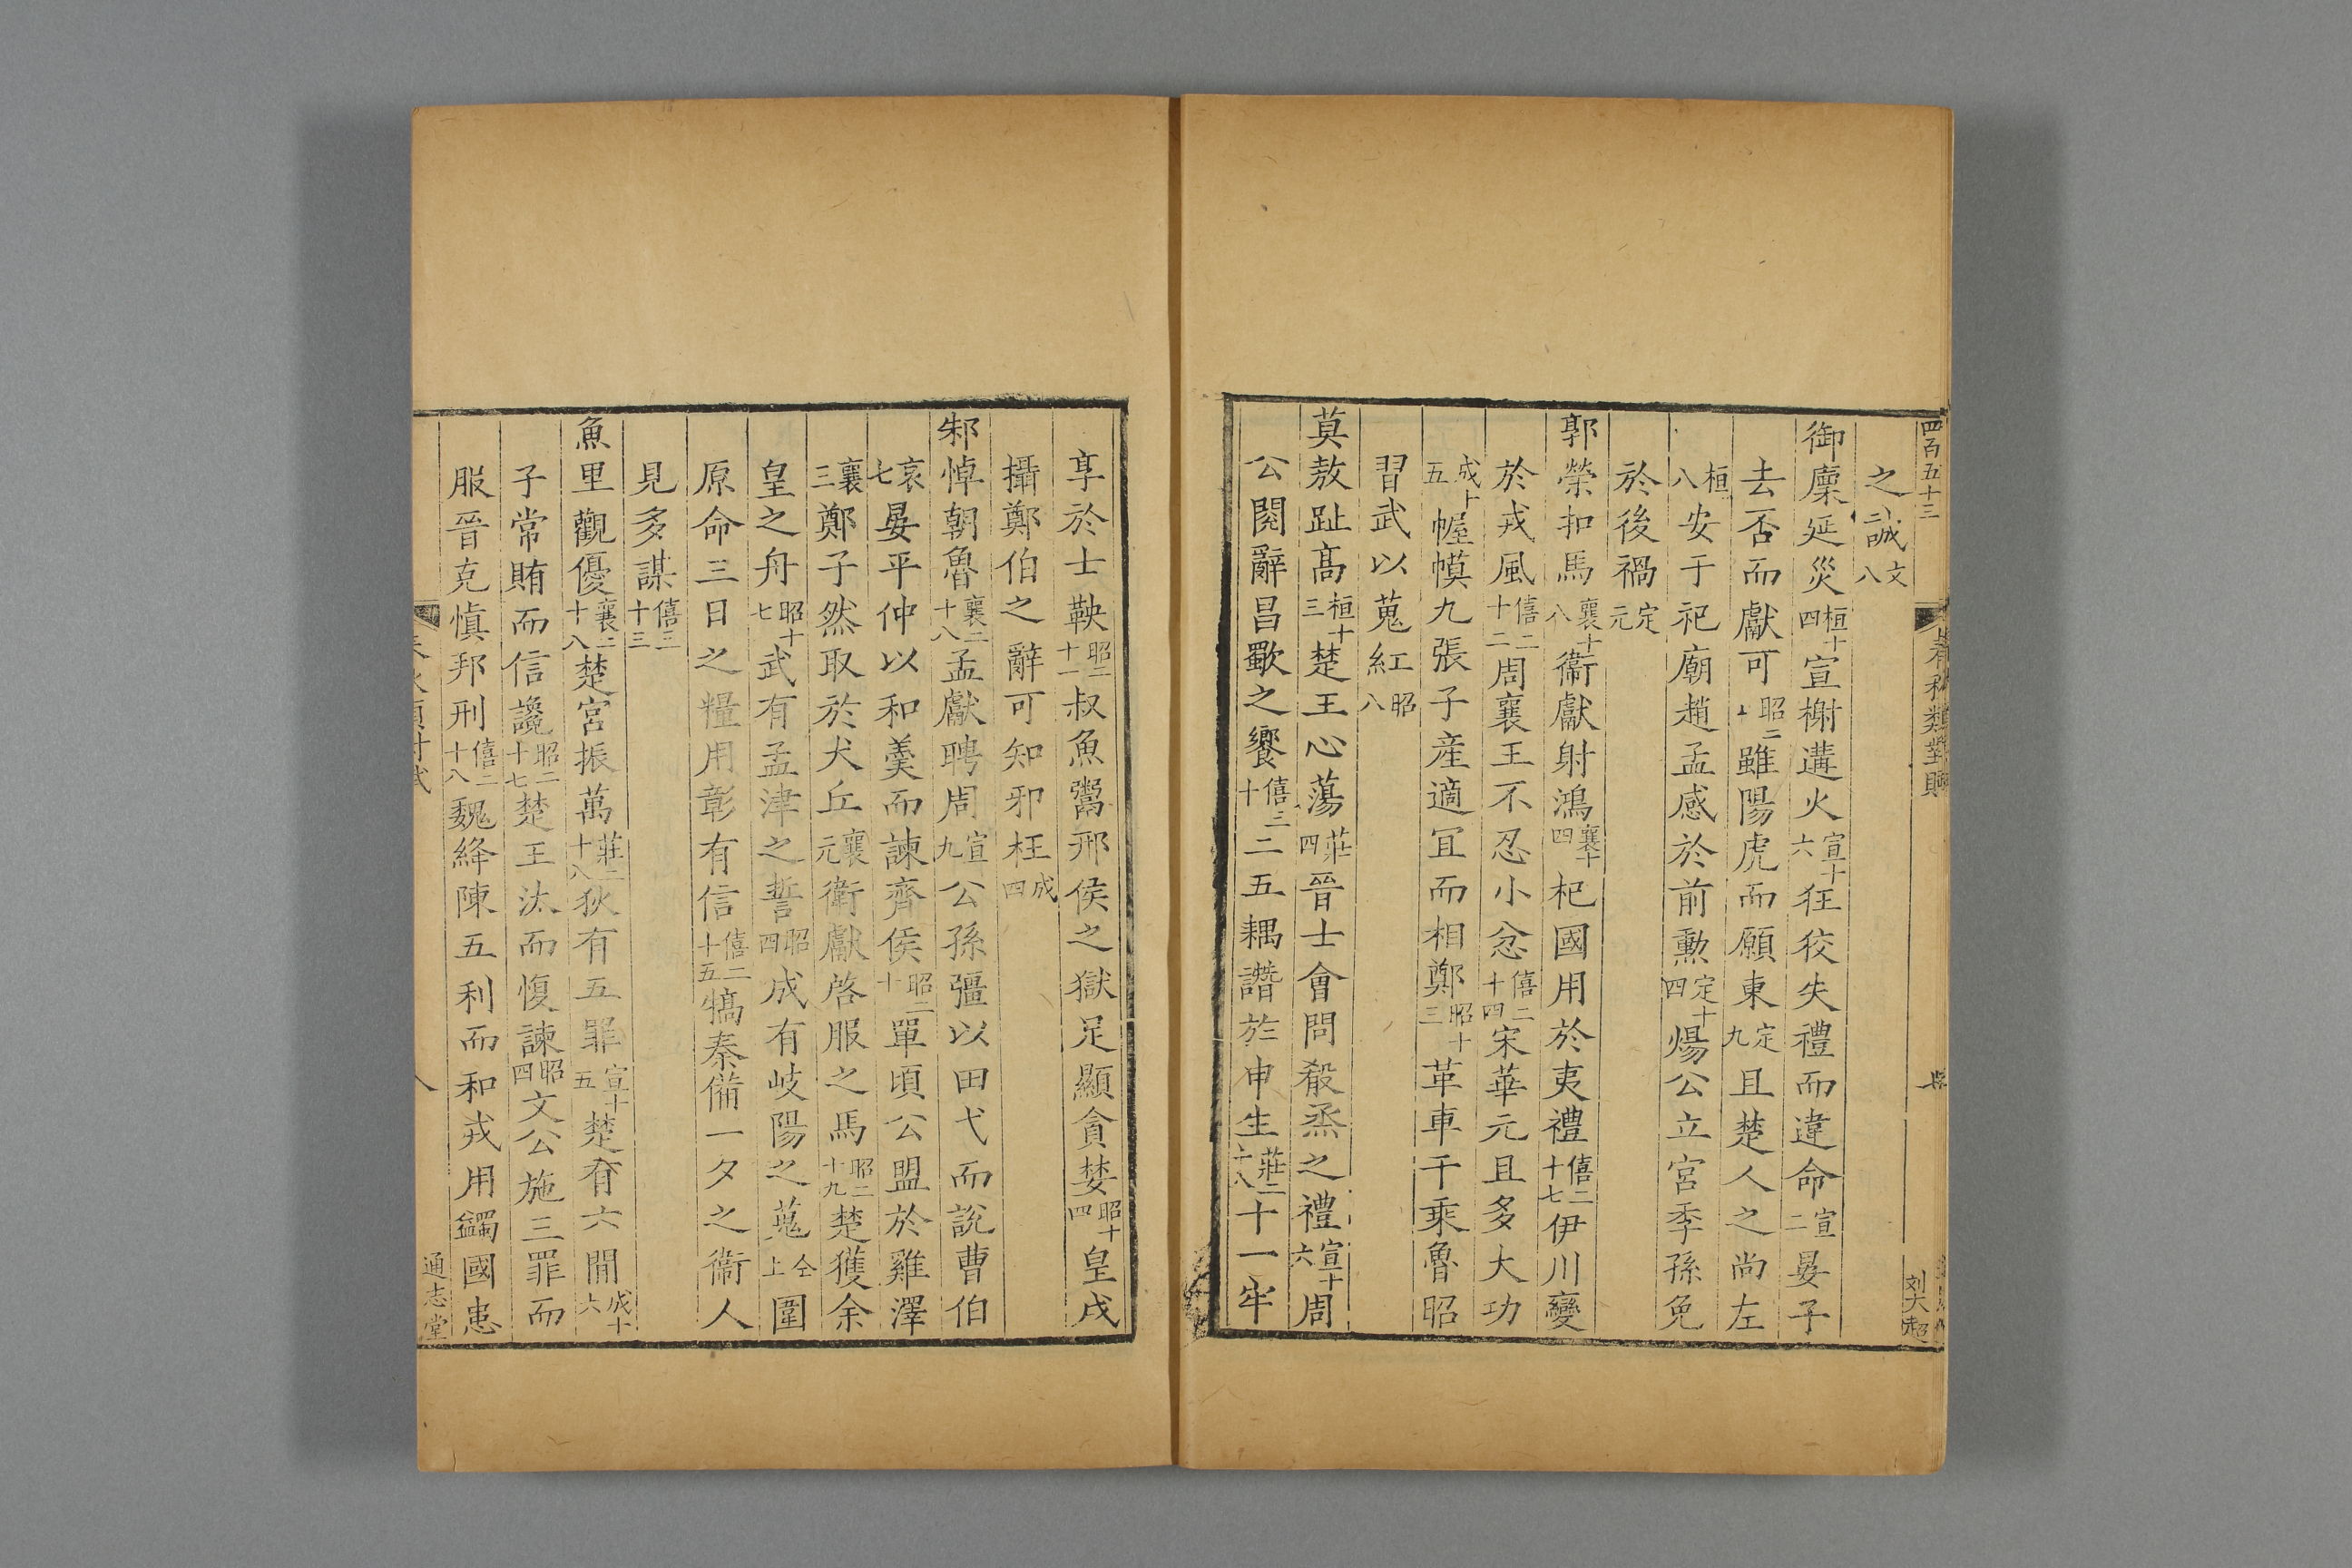 四百五十三
劉大超
之誠文八
御廩延災桓十四宣榭遘火宣十六狂狡失禮而違命宣二晏子
去否而獻可昭二雖陽虎而願東定九且楚人之尚左
桓八安于祀廟趙孟感於前勳定十四煬公立宮季孫免
於後禍定元
郭榮扣馬襄十八衞獻射鴻襄十四杞國用於夷禮僖二十七伊川變
於戎風僖二十二周襄王不忍小忿僖二十四宋華元且多大功
成十五幄幕九張子產適冝而相鄭昭十三革車千乘魯昭
習武以蒐紅昭八
莫敖趾高桓十三楚王心蕩莊四晉士會問殽烝之禮宣十六周
公閱辭昌歜之饗僖三十二五耦譖於申生莊二十八十一牢
享於士鞅昭二十一叔魚鬻邢侯之獄足顯貪婪昭十四皇戌
攝鄭伯之辭可知邪枉成四
邾悼朝魯襄二十八孟獻聘周宣九公孫彊以田弋而說曹伯
哀七晏平仲以和羹而諫齊侯昭二十單頃公盟於雞澤
襄三鄭子然取於犬丘襄元衛獻啓服之馬昭二十九楚獲余
皇之舟昭十七武有孟津之誓昭四成有岐陽之蒐仝上圍
原命三日之糧用彰有信僖二十五犒秦備一夕之衞人
見多謀僖三十三
魚里觀優襄二十八楚宮振萬莊二十八狄有五罪宣十五楚有六閒成十六
子常賄而信讒昭二十七楚王汰而愎諫昭四文公施三罪而
服晉克愼邦刑僖二十八魏絳陳五利而和戎用蠲國患
八
通志堂